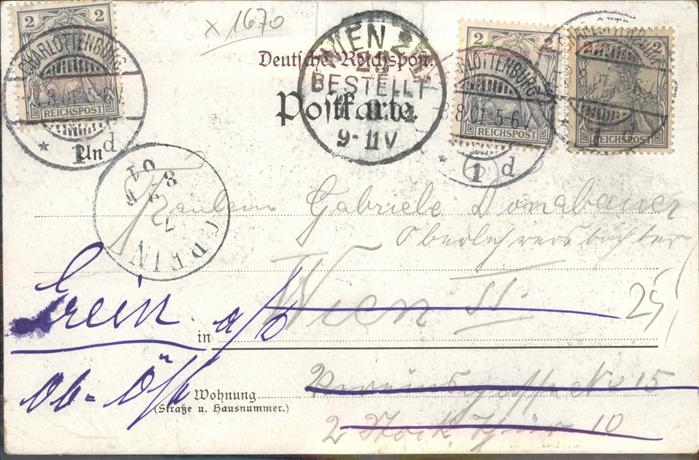 × 1670
2 2
CHARLOTTENBURG
REICHSPOST
* 1 d
WIEN 2
BESTELLT
9-11V
2 2
CHARLOTTENBURG
8.01.5-6N
REICHSPOST
* 1 d
REICHSPOST
Deutsche Reichspost.
Postkarte.
An
GREIN
Fräulein Gabriele Donabauer
Oberlehrerstochter
Grein a/D
in Wien II. 25
Ob-Öst
Wohnung Vereinsgasse No 15
(Straße u. Hausnummer.)
2 Stock, Thür 10